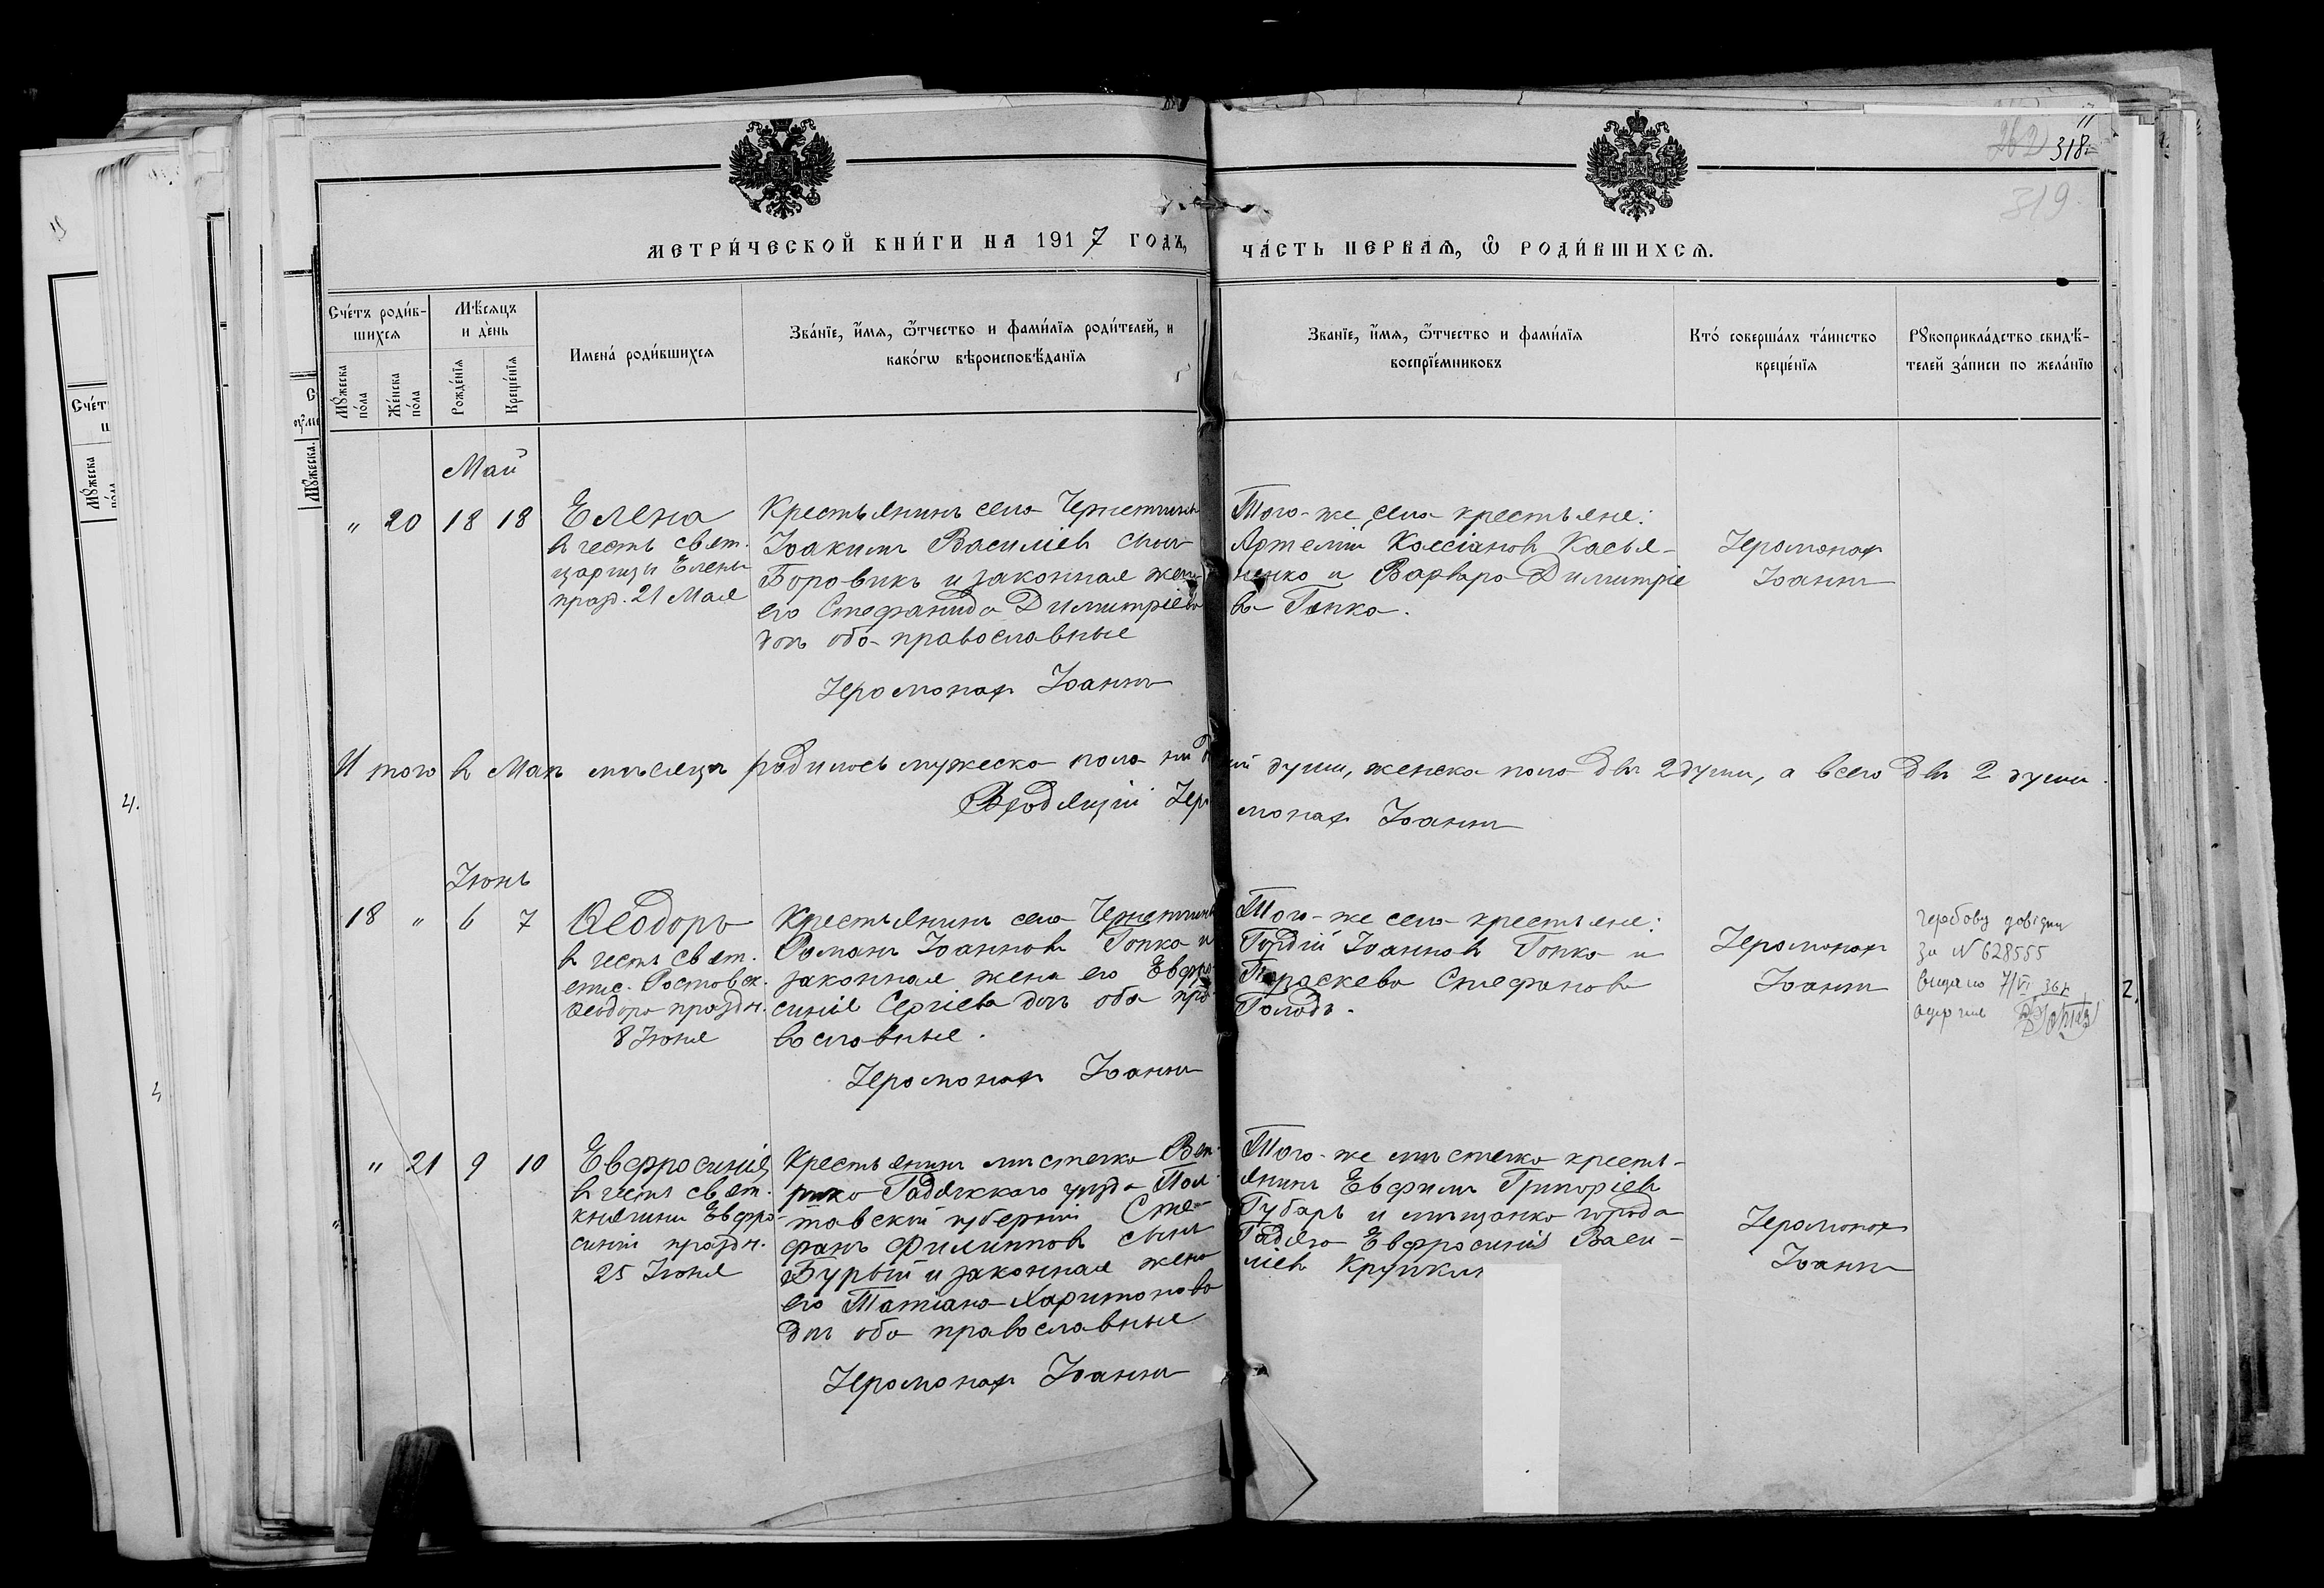 262 318
319
МЕТРИ́ЧЕСКОЙ КНИ́ГИ НА 1917 ГОДЪ, ЧА́СТЬ ПЕРВАѦ, Ѿ РОДИ́ВШИХСѦ.
Сче́тъ роди́в-
шихсѧ
Мꙋ́жеска по́ла
Же́нска по́ла
Мѣ́сѧцъ
и де́нь
Рожде́нїѧ
Креще́нїѧ
Имена́ роди́вшихсѧ
Зва́нїе, и҆́мѧ, ѻ҆́тчество и фами́лїѧ роди́телей, и
како́гѡ вѣроисповѣ́данїѧ
Зва́нїе, и҆́мѧ, ѻ҆́тчество и фами́лїѧ
воспрїе́мниковъ
Кто́ соверша́лъ та́инство
креще́нїѧ
Рꙋкоприкла́дство свидѣ́-
телей за́писи по жела́нїю
Май
" 20 18 18
Елена
в честь свят.
царицы Елены
празд. 21 Мая
Крестьянинъ села Чернетчины
Іоакимъ Василіев сынъ
Боровикъ и законная жена
его Стефанида Димитріева
дочь оба православные
Іеромонах Іоаннъ
Того-же села крестьяне:
Артемій Кассіанов Касья-
ненко и Варвара Димитріе
ва Гопка.
Іеромонах
Іоаннъ
Итого в Маѣ мѣсяцѣ родилось мужеска пола ни души, женска пола двѣ 2 души, а всего двѣ 2 души.
Іеромонах Іоаннъ
Іюнь
18 " 6 7
Ѳеодоръ
в честь свят.
епис. Ростовск.
Ѳеодора праздн.
8 Іюня
Крестьянинъ села Чернетчины
Романъ Іоаннов Гопка и
законная жена его Евфро
синія Сергіева дочь оба пра
вославные.
Іеромонах Іоаннъ
Того-же села крестьяне:
Гордій Іоаннов Гопка и
Параскева Стефанова
Голодъ.
Іеромонах
Іоаннъ
за N 628555
видано 7/VI 36 р
" 21 9 10
Евфросинія
в честь свят.
княгини Евфро-
синіи праздн.
25 Іюня
Крестьянинъ мѣстечка Веп-
рика Гадячскаго уѣзда Пол-
тавской губерніи Сте-
фанъ Филиппов сынъ
Бурый и законная жена
его Татіана Харитонова
дочь оба православные
Іеромонах Іоаннъ
Того-же мѣстечка кресть-
янинъ Евфимъ Григоріев
Губарь и мѣщанка города
Гадяча Евфросинія Васи-
ліев
Іеромонах
Іоаннъ